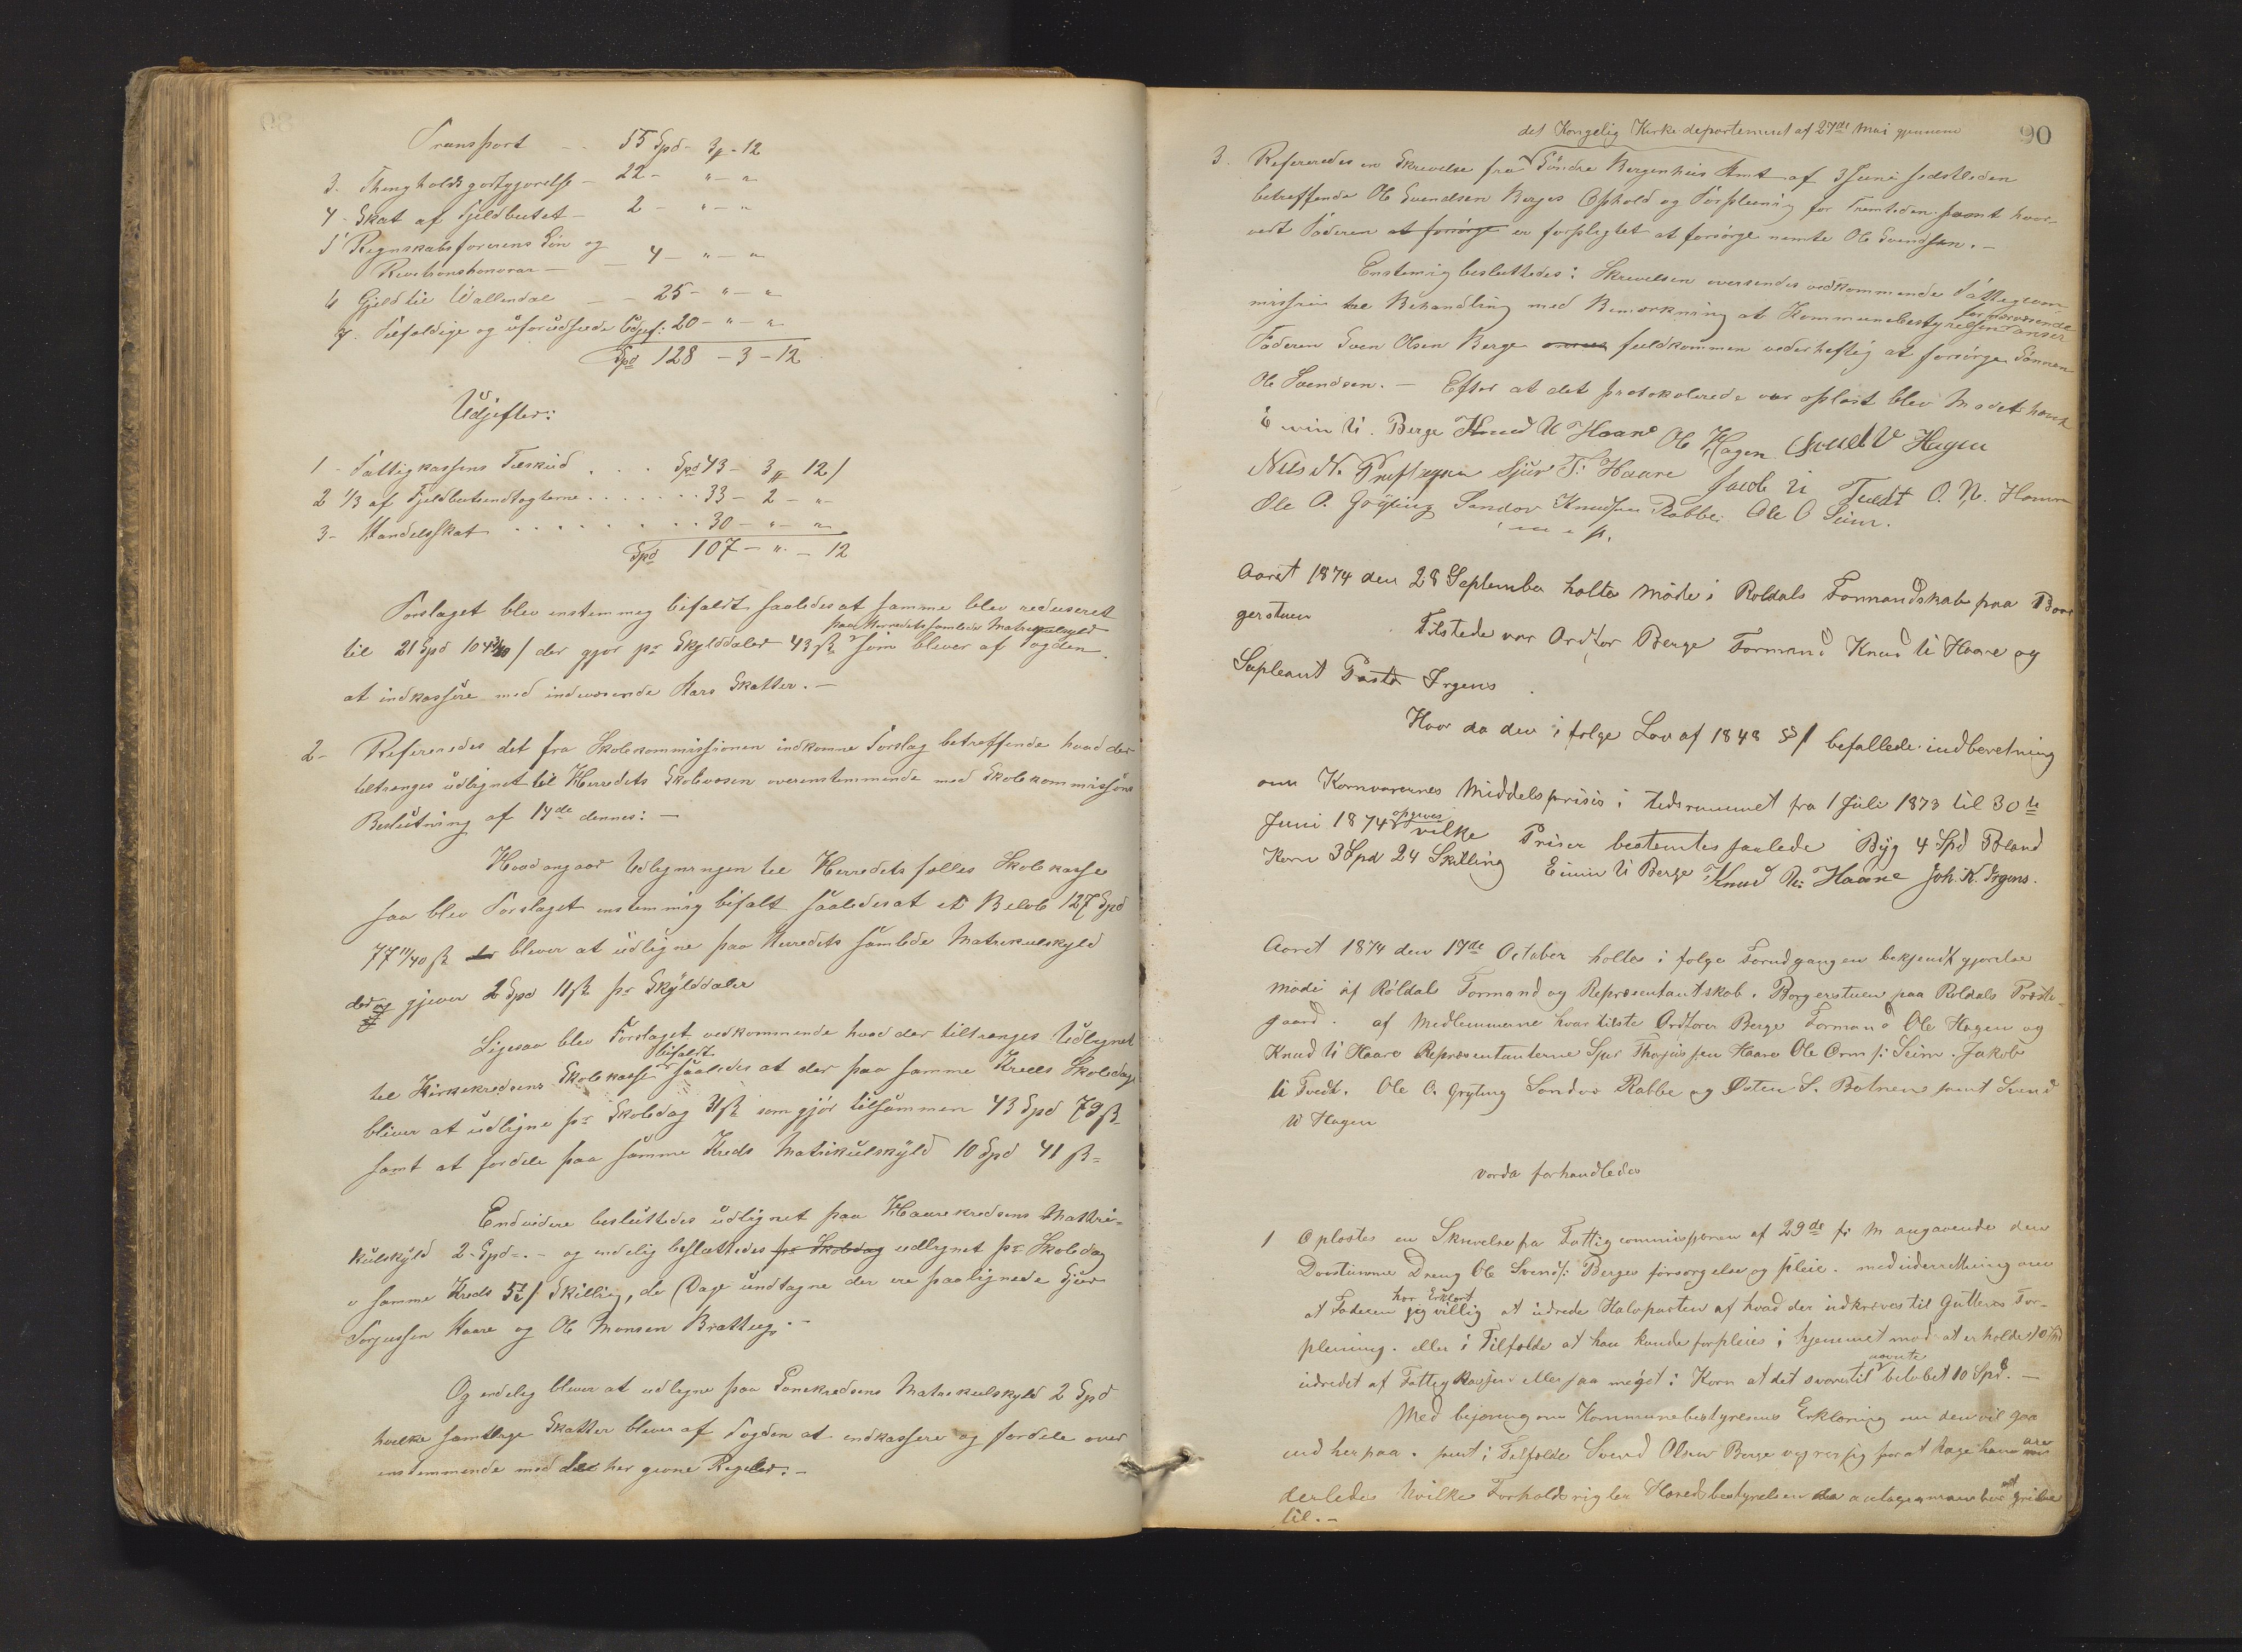 Transport - - 55 Spd - 3 - 12
3. Thingholds godtgjorelse - 22 - " - "
4 - Skat af Fjeldbeitet - 2 - " - "
5 Regnskabsforerens Løn og
Revisionshonorar - - 4 - " - "
6 Gjeld til Vallendal - - 25 - " - "
7. Tilfeldige og uforudseede Udgif: 20 - " - "
Spd 128 - 3 - 12
Udgifter:
1 - Fattigkassens Tilskud . . . Spd 43 - 3 12/
2 1/3 af Fjeldbeiteindtægterne . . . . . . . 33 - 2 - "
3 - Handelsskat . . . . . . . . . 30 - " - "
Spd 107 - " - 12
Forslaget blev enstemmig bifaldt saaledes at samme blev reduseret
paa Herredets samlede Matrikulskyld
til 21 Spd 104 / der gjør pr Skylddaler 43 ß som bliver af Fogden
at indkassere med indeværende Aars Skatter. -
2 - Refereredes det fra Skolekommissionen indkomne Forslag betreffende hvad der
tiltrænges udlignet til Herredets Skolevæsen overenstemmende med Skolekommissions
Beslutning af 14de dennes: -
Hvad angaar Udligningen til Herredets fælles Skolekasse
saa blev Forslaget enstemmig bifalt saaledes at et Beløb 127 Spd
77 11/40 ß der bliver at udligne paa Herredets samlede Matrikulskyld
der gjører 2 Spd 11 ß pr Skylddaler
Ligesaa blev Forslaget vedkommende hvad der tiltrænges Udlignet
bifaldt
til Kirkekredsens Skolekasse saaledes at der paa samme Kreds Skoledage
bliver at udligne pr Skoledag 31 ß som gjør tilsammen 43 Spd 79 ß
samt at fordele paa samme Kreds Matrikulskyld 10 Spd 41 ß -
Endvidere besluttedes udlignet paa Haarekredsens Matri-
kulskyld 2 - Spd - . - og endelig besluttedes pr Skoledag udlignet pr Skoledag
i samme Kreds Skilling, de Dage undtagne der ere paalignede Sjur
Torgussen Haare og Ole Monsen Bratteg. -
Og endelig bliver at udligne paa Kredsens Matrikulskyld 2 Spd
hvilke samtlige Skatter bliver af Fogden at indkassere og fordele over
enstemmende med de her givne Regler. -
90
det Kongelig Kirkedepartement af 27de Mai gjennem
3. Refereredes en Skrivelse fra Søndre Bergenhus Amt af 3 Juni sidstleden
betreffende Ole Svendsen Berges Ophold og Forpleining for Fremtiden samt hvor-
vidt Faderen at forsørge er forpligtet at forsørge nemte Ole Svendsen. -
Enstemig besluttedes: Skrivelsen oversendes vedkommende Fattigcom-
for nærværende
missin til Behandling med Bemærkning at Kommunebestyrelsen anser
Faderen Sven Olsen Berge fuldkommen vederheftig at forsørge Sønnen
Ole Svendsen. - Efter at det protokolerede var oplæst blev Mødet hævet
Eivin U. Berge Knud U Haare Ole Hagen Svend V Hagen
Nils N. Sjur T. Haare Jacob U Tvedt O. N. Hamre
Ole O. Gryting Sandor Knudsen Rabbe. Ole O Seim.
Aaret 1874 den 28 September holtes Møde i Røldals Formandskab paa Bor
gerstuen Tilstede var Ordfør Berge Formand Knud U Haare og
Supleant Præst Irgens
Hvor da den i følge Lov af 1848 § 1 befallede indberetning
om Kornvarernes Middelspriser i tidsrummet fra 1 Juli 1873 til 30te
opgives
Juni 1874 vilke Priser bestemtes saalede Byg 4 Spd Bland
Korn 3 Spd 24 Skilling Eivin U Berge Knud U: Haare Joh. K. Irgens.
Aaret 1874 den 17de October holtes i følge Forudgangen bekjendtgjørelse
Møde af Røldals Formand og Repræsentantskab. Borgerstuen paa Røldals Præste-
gaard. af Medlemmerne hvar tilste Ordfører Berge Formand Ole Hagen og
Knud U Haare Repræsentanterne Sjur Thorjussen Haare Ole Orm s: Seim. Jakob
U Tvedt. Ole O. Gryting Sandor Rabbe og Østen S. Botnen samt Svend
V Hagen
vorda forhandledes
1 Oplæstes en Skrivelse fra Fattigcommissionen af 29de f. M angaaende den
Døvstumme Dreng Ole Svends: Berges forsørgelse og pleie. med underretning om
har Erklært
at Faderen sig villig at udrede Halvparten af hvad der udkræves til Guttens For-
pleining. eller i Tilfælde at han kunde forpleies i hjemmet mod at erholde 10 Spd
nævnte
udredet af Fattigkassen eller saa meget i Korn at det svarer til beløbet 10 Spd. -
Med begjæring om Kommunebestyrelsens Erklæring om den vil gaa
ind herpaa. samt i Tilfælde Svend Olsen Berge vegrer sig for at tage ham
derledes hvilke Forholdsrigler Herredsbestyrelsen da antager man bør gribe
til. -